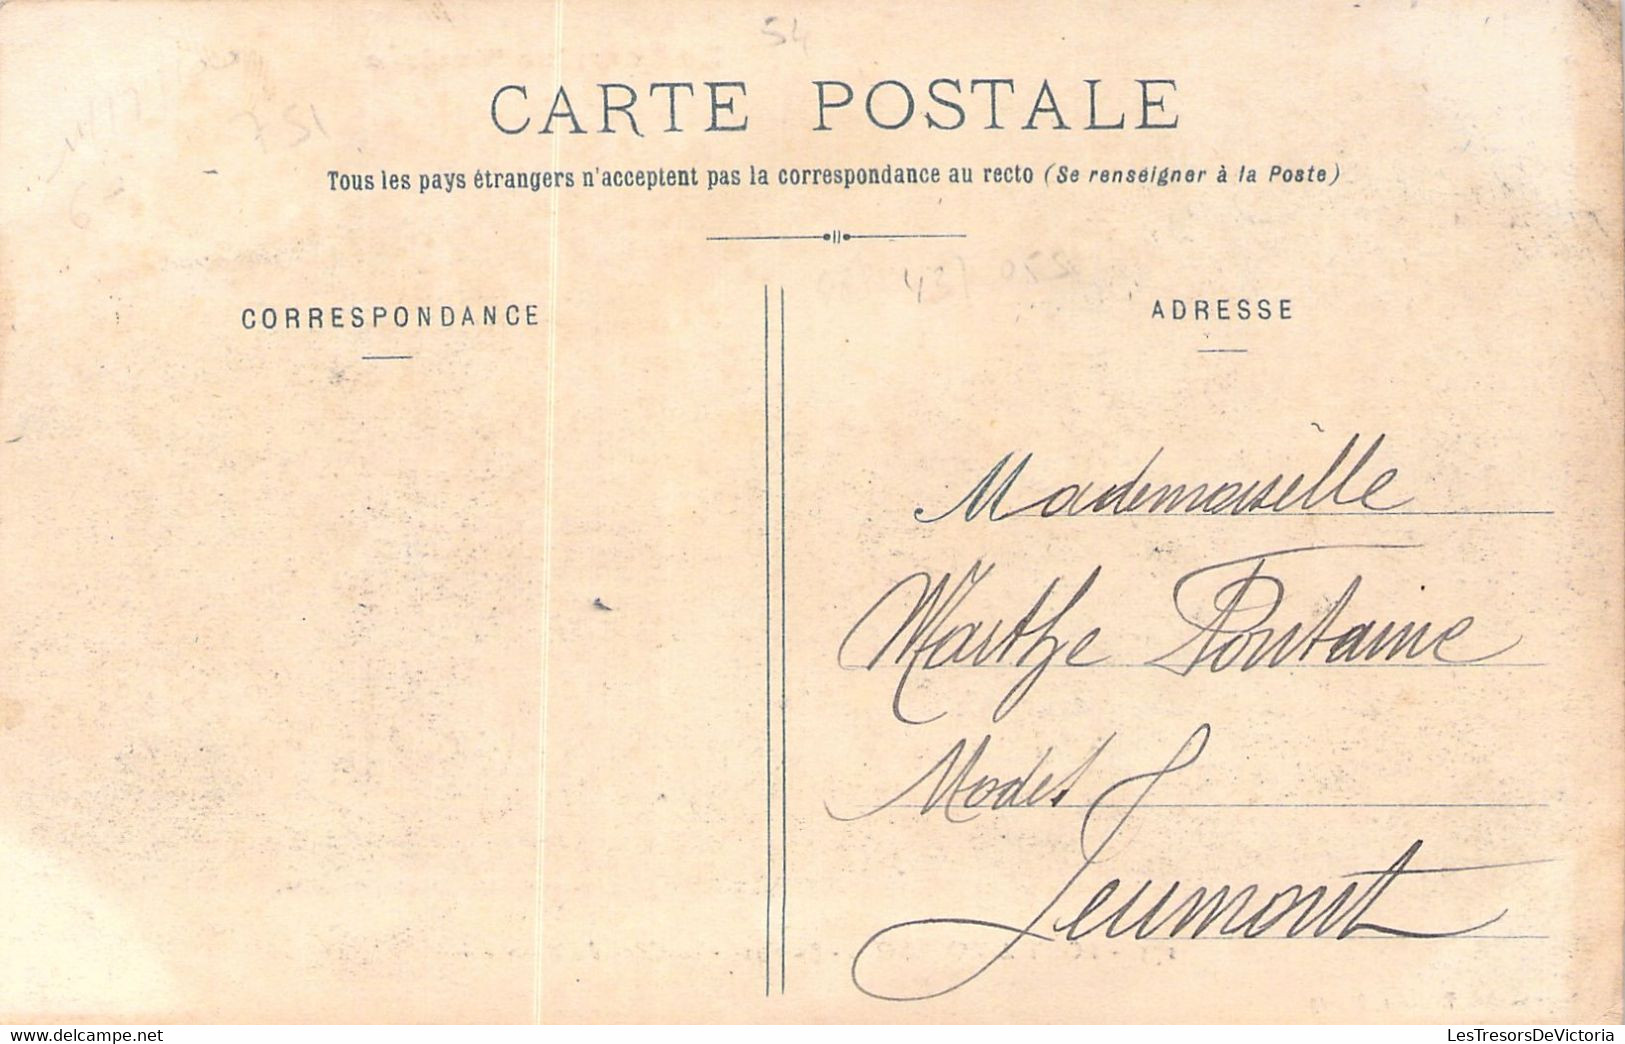 54
751
CARTE POSTALE
Tous les pays étrangers n'acceptent pas la correspondance au recto (Se renseigner à la Poste)
CORRESPONDANCE
ADRESSE
Mademoiselle
Marthe Fontaine
Modes
Jeumont
LesTresorsDeVictoria